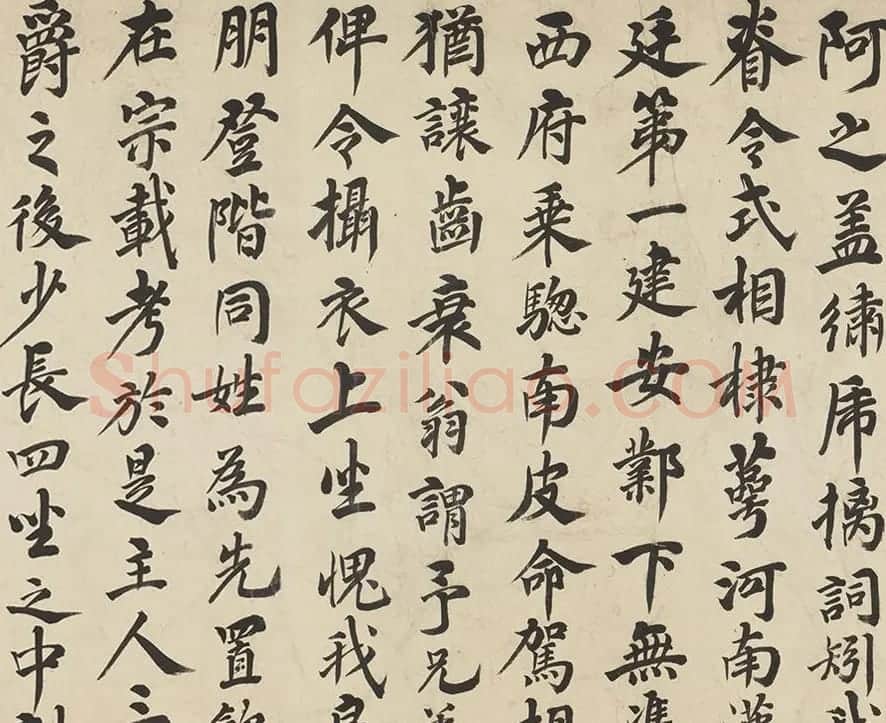 阿之盖繡虎摛詞矧
眷令式相棣萼河南
廷第一建安鄴下無
西府乘驄南皮命駕
猶讓齒衰翁謂予兄
俾令攝衣上坐愧我
朋登階同姓為先置
在宗載考於是主人
爵之後少長四坐之中
Shufaziliao.COM